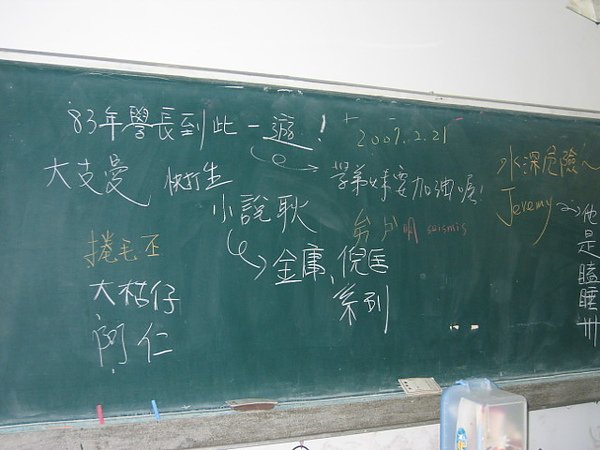 83年學長到此一遊！
2007.2.21
學弟妹要加油喔!
大支曼 快打生
小說耿
金庸、倪匡
系列
捲毛丕
大楷仔
阿仁
明 seismis
水深危險~
Jeremy
他是瞌睡卅